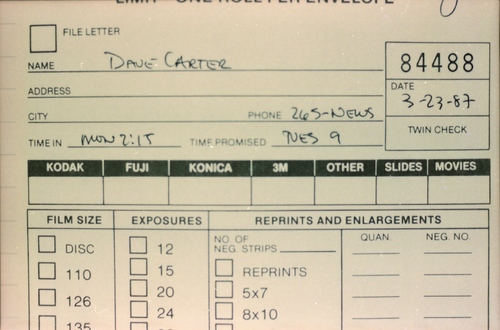 LIMIT - ONE ROLL PER ENVELOPE
FILE LETTER
NAME DAVE CARTER
84488
ADDRESS
DATE
3-23-87
CITY PHONE 265-NEWS
TWIN CHECK
TIME IN MON 2:15 TIME PROMISED TUES 9
KODAK FUJI KONICA 3M OTHER SLIDES MOVIES
FILM SIZE EXPOSURES REPRINTS AND ENLARGEMENTS
DISC 12 NO. OF NEG. STRIPS QUAN. NEG. NO.
110 15 REPRINTS
126 20 5x7
135 24 8x10